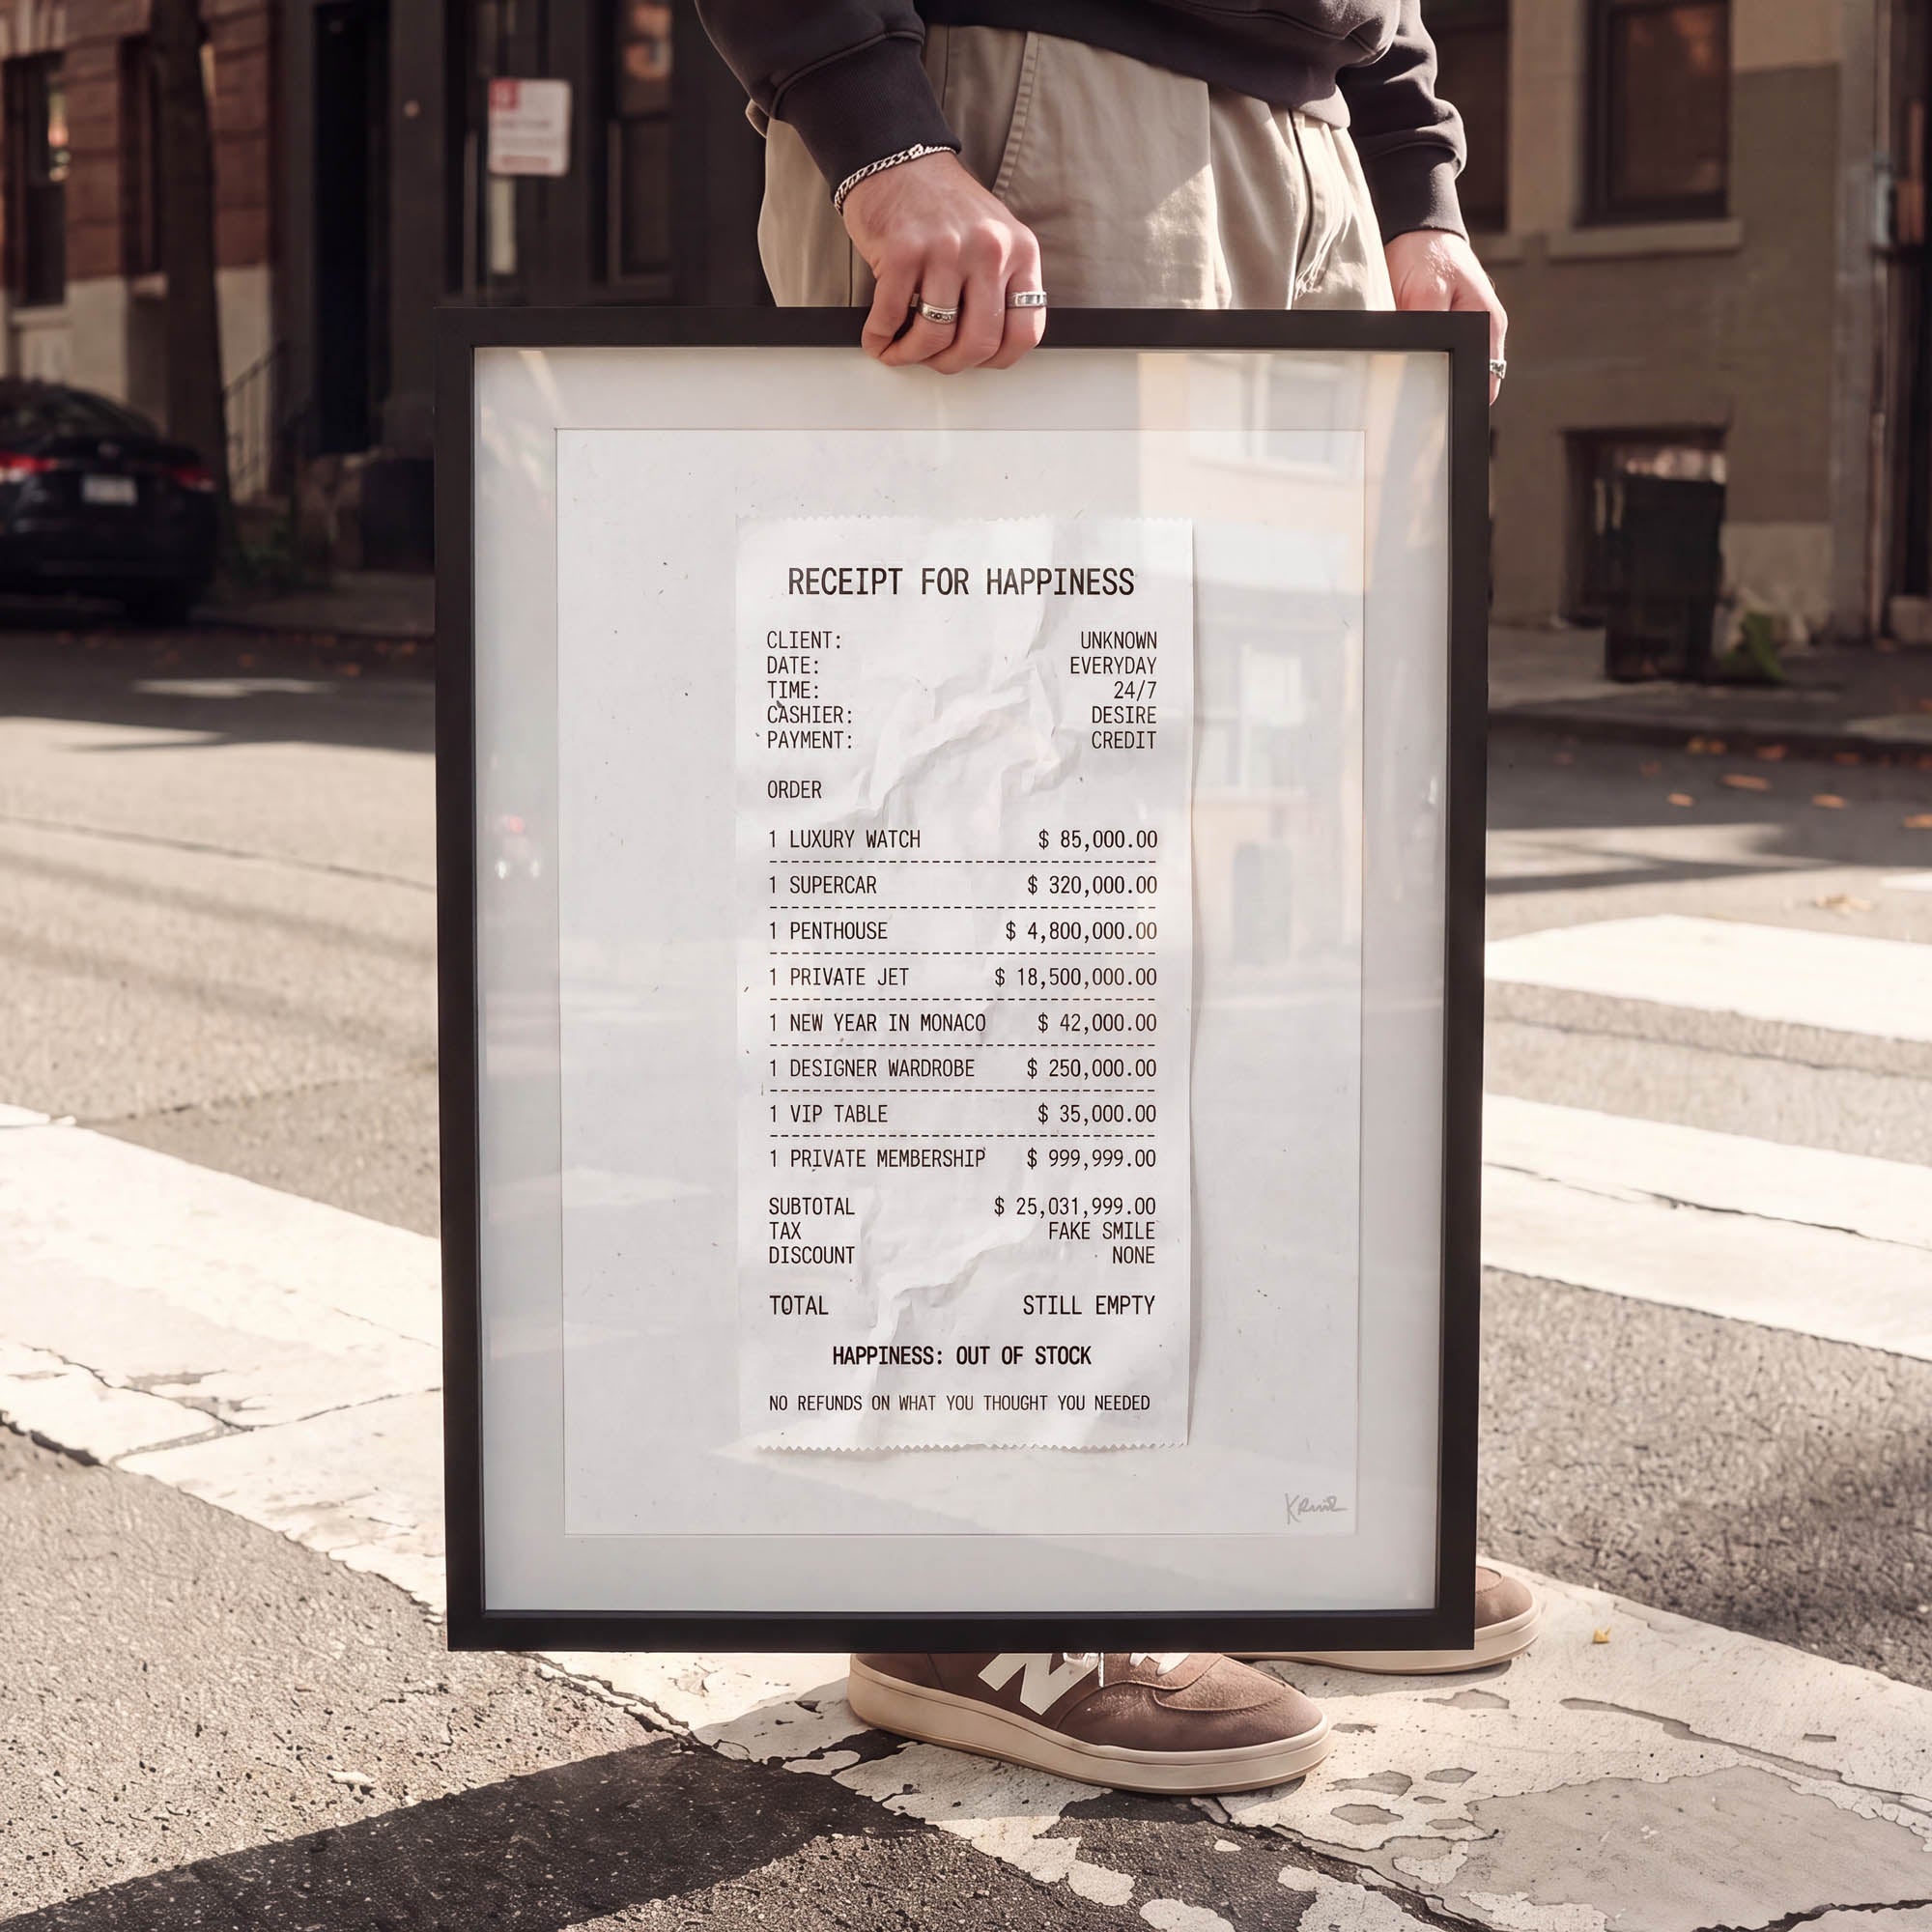 RECEIPT FOR HAPPINESS
CLIENT: UNKNOWN
DATE: EVERYDAY
TIME: 24/7
CASHIER: DESIRE
PAYMENT: CREDIT
ORDER
1 LUXURY WATCH $ 85,000.00
1 SUPERCAR $ 320,000.00
1 PENTHOUSE $ 4,800,000.00
1 PRIVATE JET $ 18,500,000.00
1 NEW YEAR IN MONACO $ 42,000.00
1 DESIGNER WARDROBE $ 250,000.00
1 VIP TABLE $ 35,000.00
1 PRIVATE MEMBERSHIP $ 999,999.00
SUBTOTAL $ 25,031,999.00
TAX FAKE SMILE
DISCOUNT NONE
TOTAL STILL EMPTY
HAPPINESS: OUT OF STOCK
NO REFUNDS ON WHAT YOU THOUGHT YOU NEEDED
N